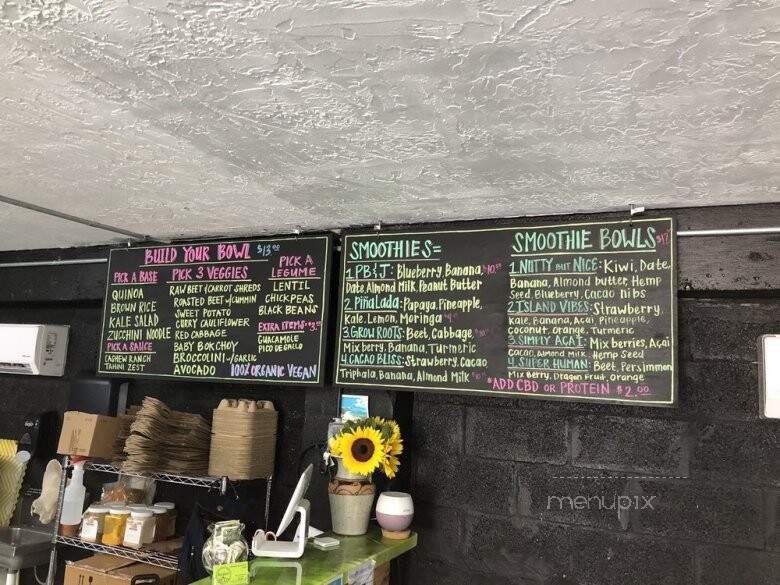 BUILD YOUR BOWL $13.00
PICK A BASE
QUINOA
BROWN RICE
KALE SALAD
ZUCCHINI NOODLE
PICK A SAUCE
CASHEW RANCH
TAHINI ZEST
PICK 3 VEGGIES
RAW BEET & CARROT SHREDS
ROASTED BEET W/CUMMIN
SWEET POTATO
CURRY CAULIFLOWER
RED CABBAGE
BABY BOK CHOY
BROCCOLINI W/GARLIC
AVOCADO
PICK A
LEGUME
LENTIL
CHICKPEAS
BLACK BEANS
EXTRA ITEMS $3.00
GUACAMOLE
PICO DE GALLO
100% ORGANIC VEGAN
SMOOTHIES=
1. PB & J: Blueberry, Banana,
Date Almond Milk, Peanut Butter
2. Piña Lada: Papaya, Pineapple,
Kale, Lemon, Moringa
3. GROW ROOTS: Beet, Cabbage
Mix berry, Banana, Turmeric
4. CACAO BLISS: Strawberry, Cacao
Triphala, Banana, Almond Milk
SMOOTHIE BOWLS
1. NUTTY BUT NICE: Kiwi, Date,
Banana, Almond butter, Hemp
Seed, Blueberry, Cacao nibs
2. ISLAND VIBES: Strawberry,
Kale, Banana, Açai, Pineapple,
Coconut, Orange, Turmeric
3. SIMPLY AÇAI: Mix berries, Açai
Cacao, Almond Milk, Hemp Seed
4. SUPER HUMAN: Beet, Persimmon
Mix Berry, Dragon Fruit, Orange
*ADD CBD OR PROTEIN $2.00
menupix